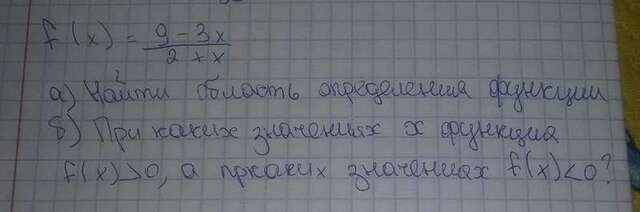 f(x) = 9 - 3x / 2 + x
а) Найти область определения функции
б) При каких значениях x функция
f(x)>0, а пркаких значениях f(x)<0?